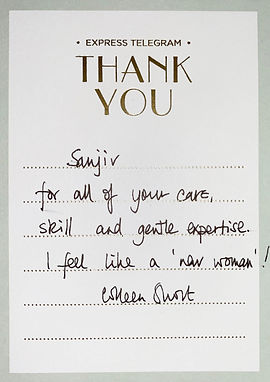 • EXPRESS TELEGRAM •
THANK
YOU
Sanjiv
for all of your care,
skill and gentle expertise.
I feel like a 'new woman'!
Colleen Short